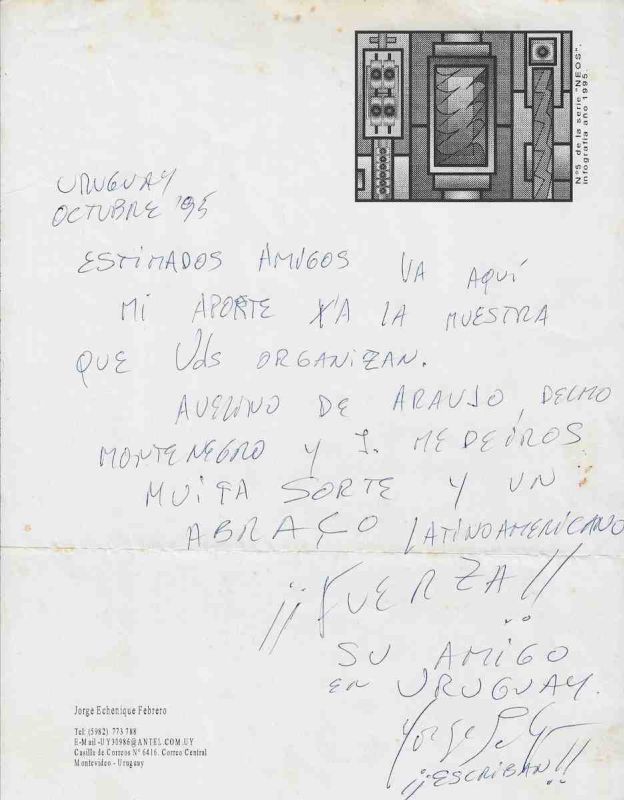 Nº5 de la serie "NEOS".
infografía año 1995.
URUGUAY
OCTUBRE '95
ESTIMADOS AMIGOS VA AQUÍ
MI APORTE X'A LA MUESTRA
QUE Uds ORGANIZAN.
AVELINO DE ARAUJO, DELMO
MONTENEGRO Y J. MEDEIROS
MUITA SORTE Y UN
ABRAÇO LATINOAMERICANO
¡¡FUERZA!!
SU AMIGO
EN URUGUAY.
Jorge
¡¡ESCRIBAN!!
Jorge Echenique Febrero
Tel: (5982) 773 788
E-Mail -UY30986@ANTEL.COM.UY
Casilla de Correos Nº 6416. Correo Central
Montevideo - Uruguay